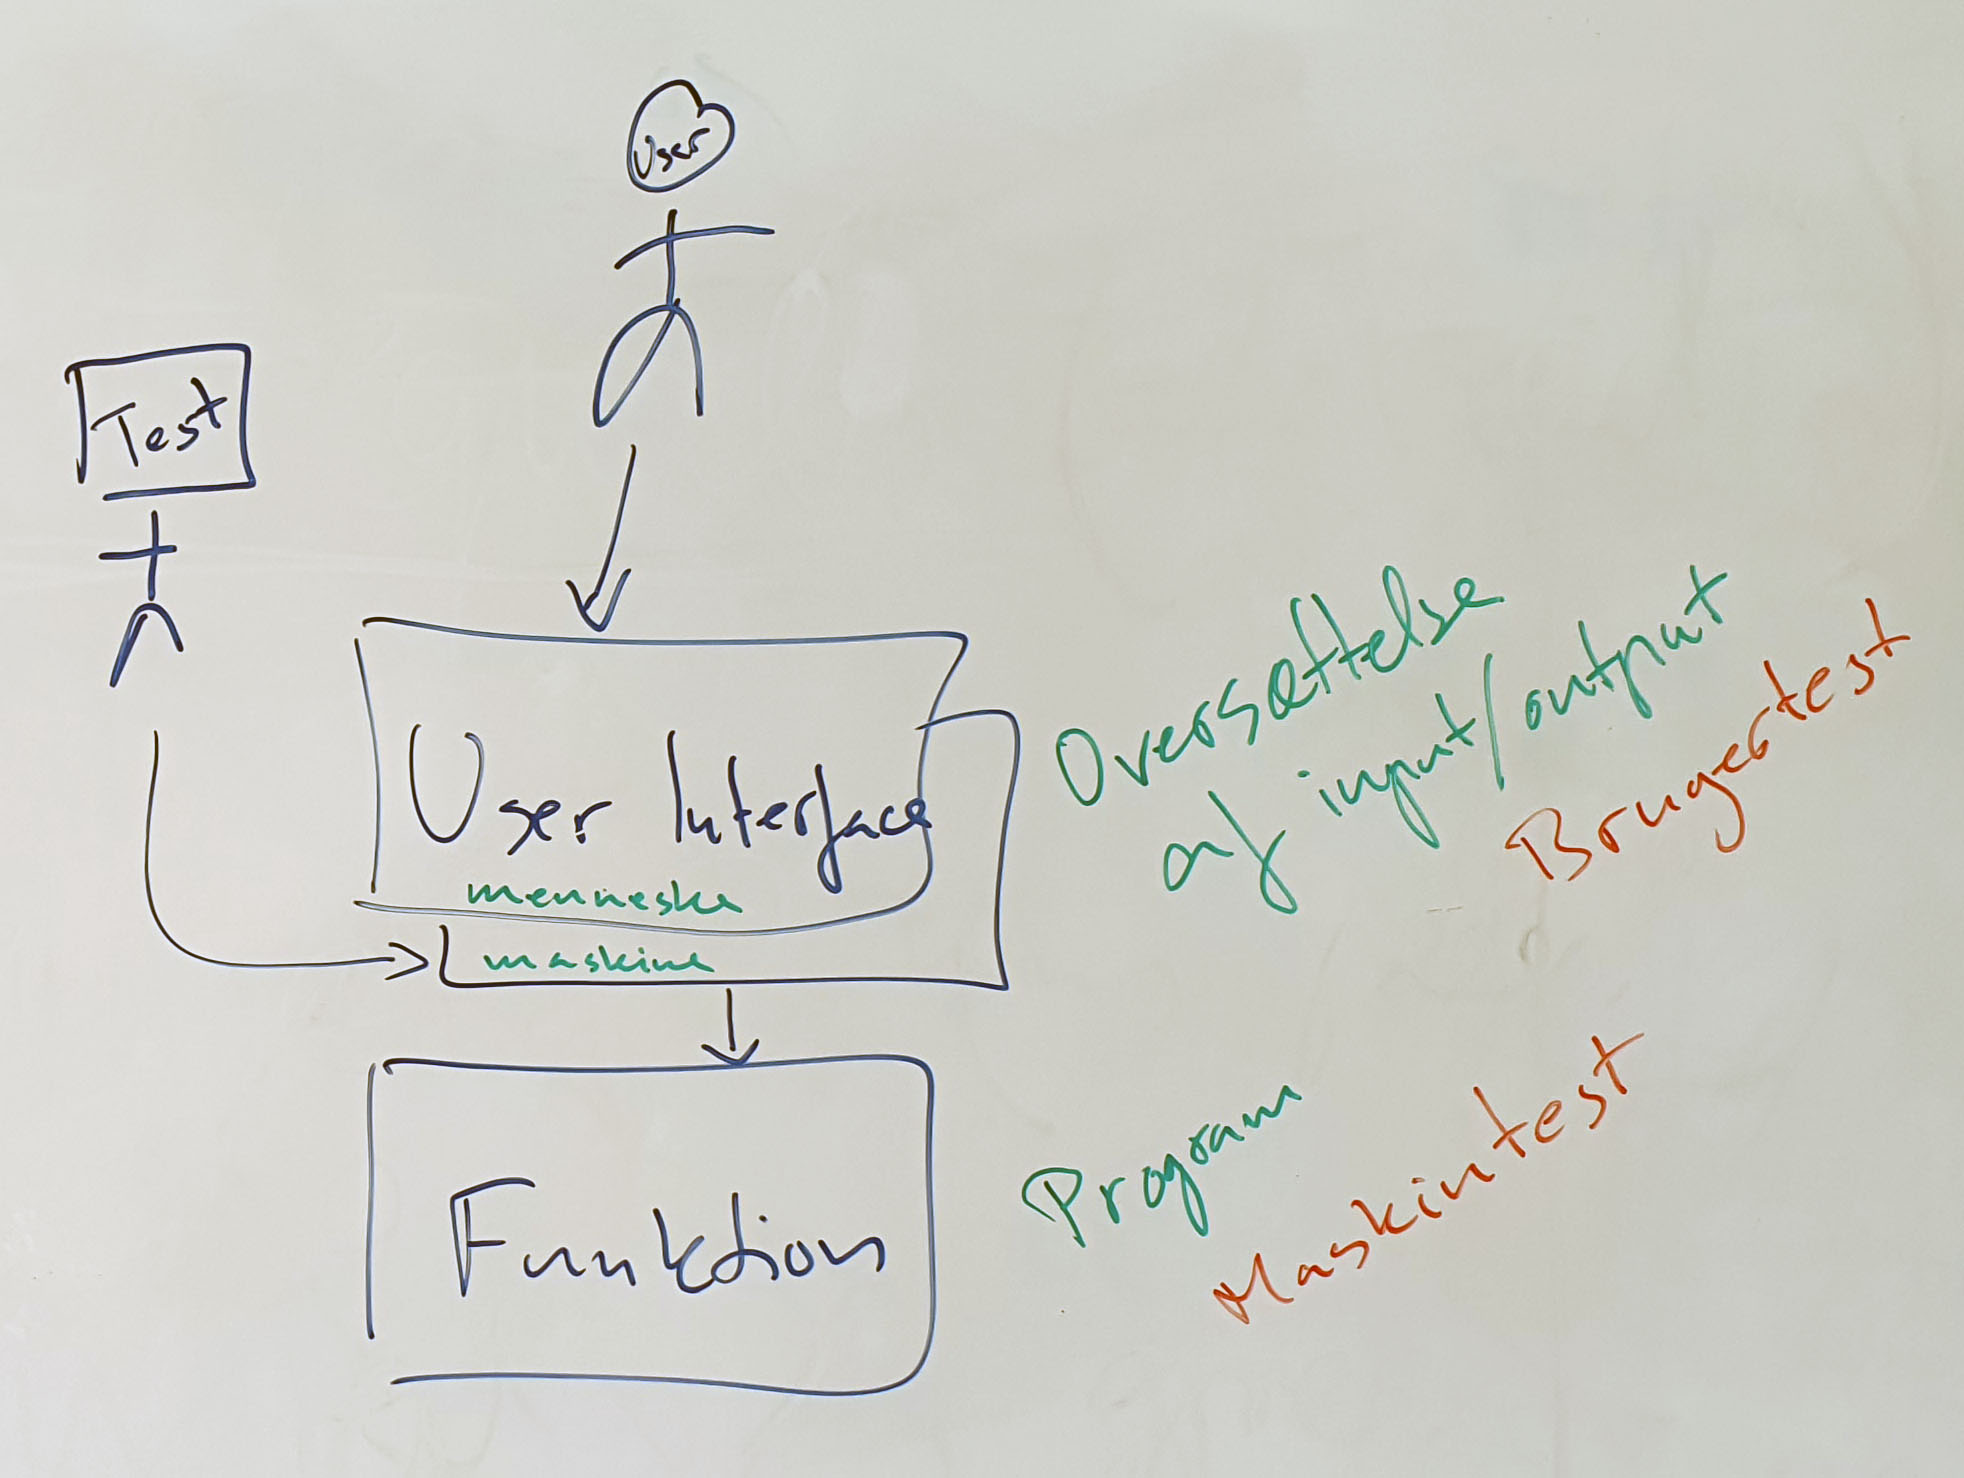 User
Test
User Interface
menneske
maskine
Oversættelse
af input/output
Brugertest
Funktion
Program
Maskintest